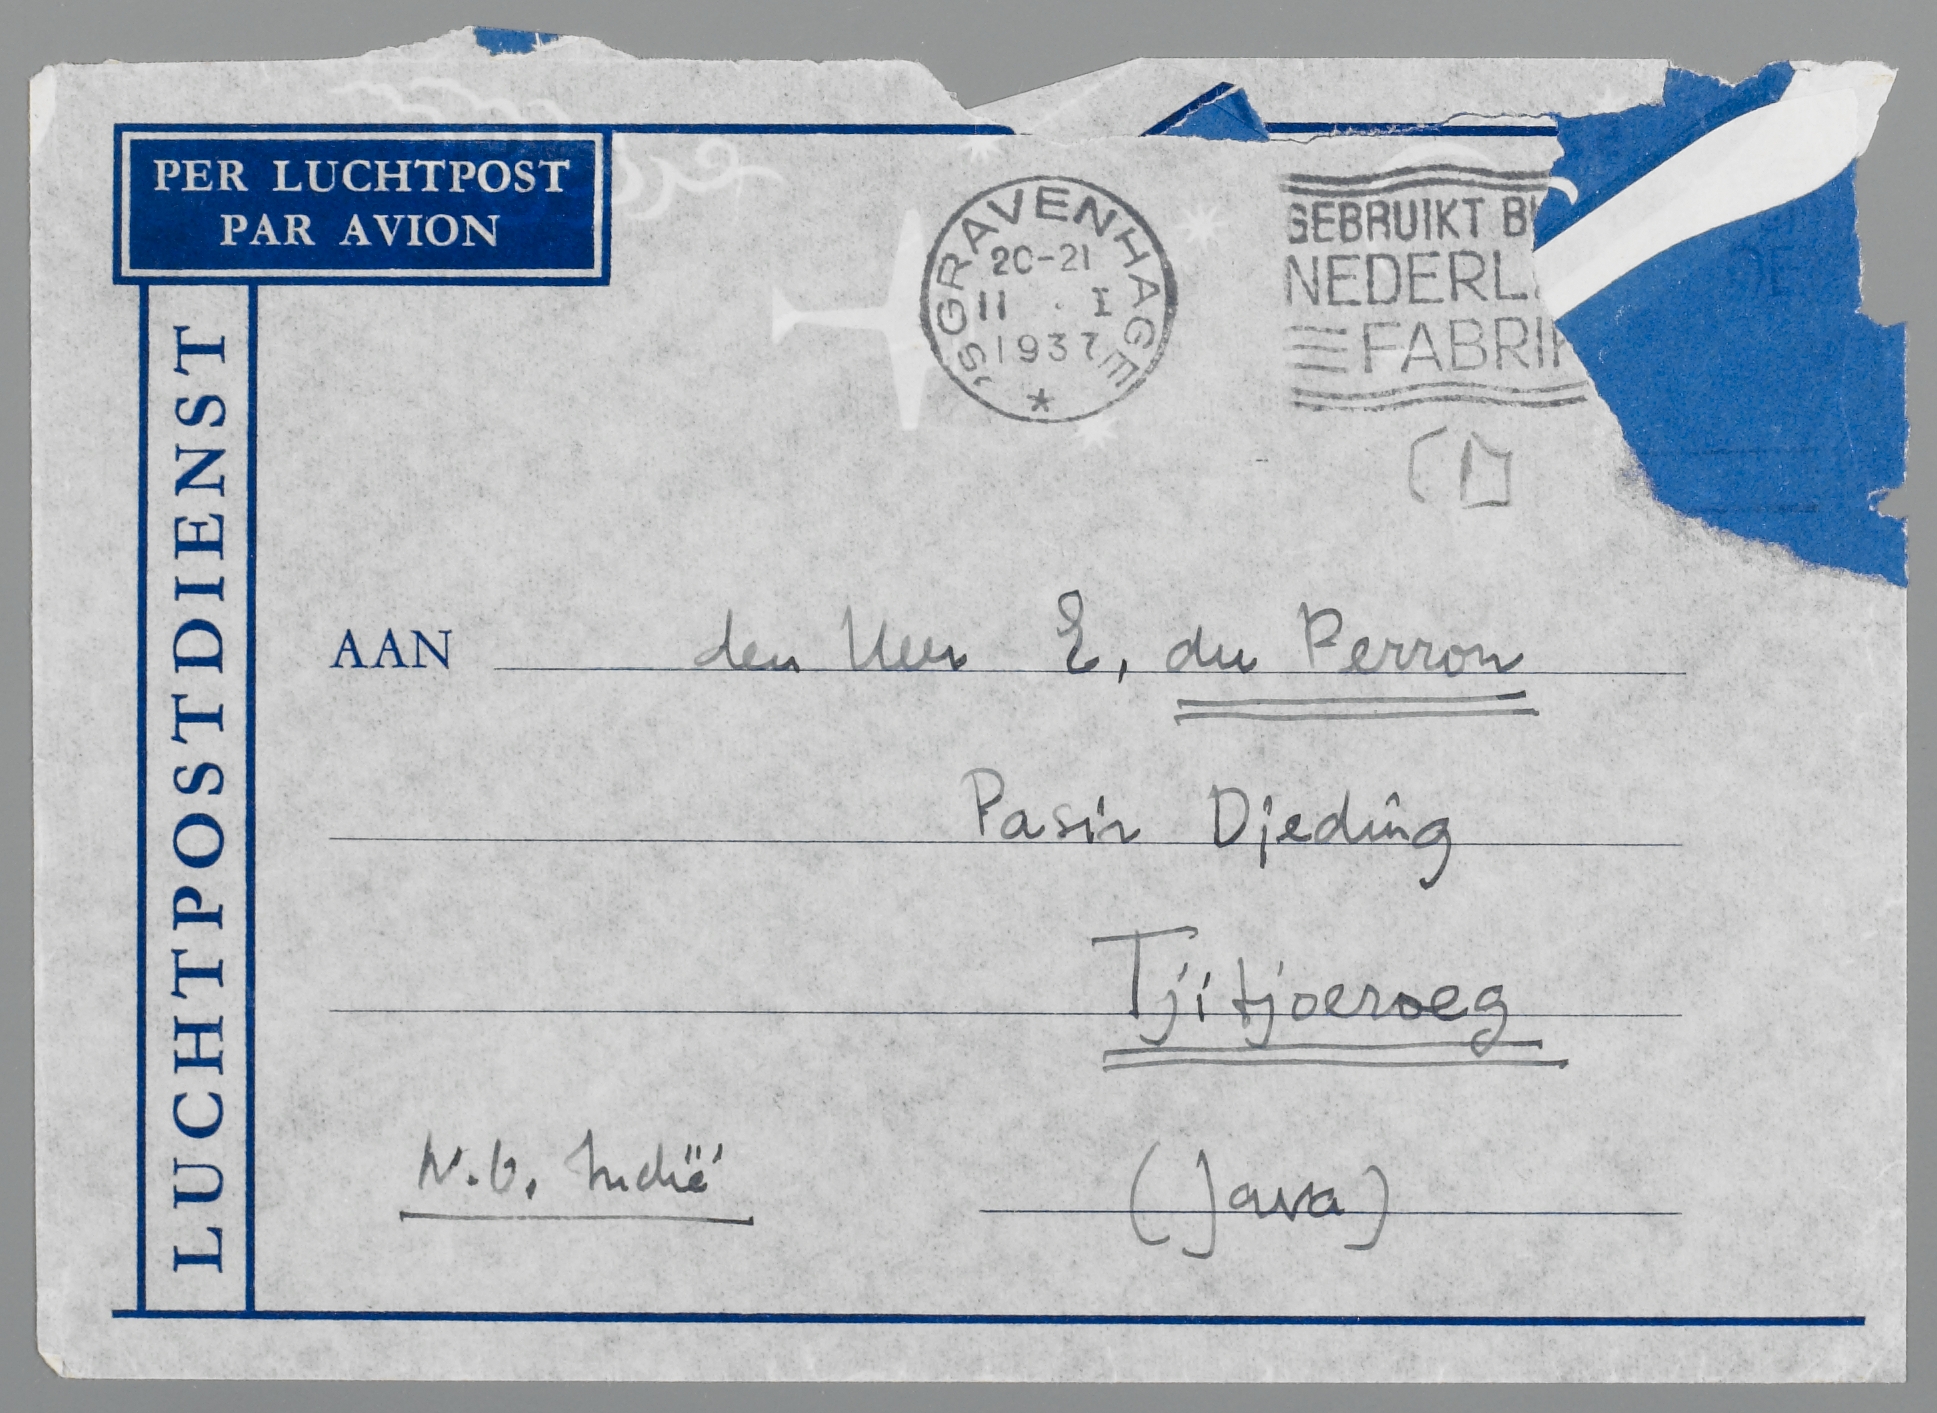 PER LUCHTPOST
PAR AVION
LUCHTPOSTDIENST
'S GRAVENHAGE
20-21
11 . I
1937
GEBRUIKT
NEDERL
FABRIK
AAN den Heer E. du Perron
Pasir Djeding
Tjitjoeroeg
N.O. Indië
(Java)